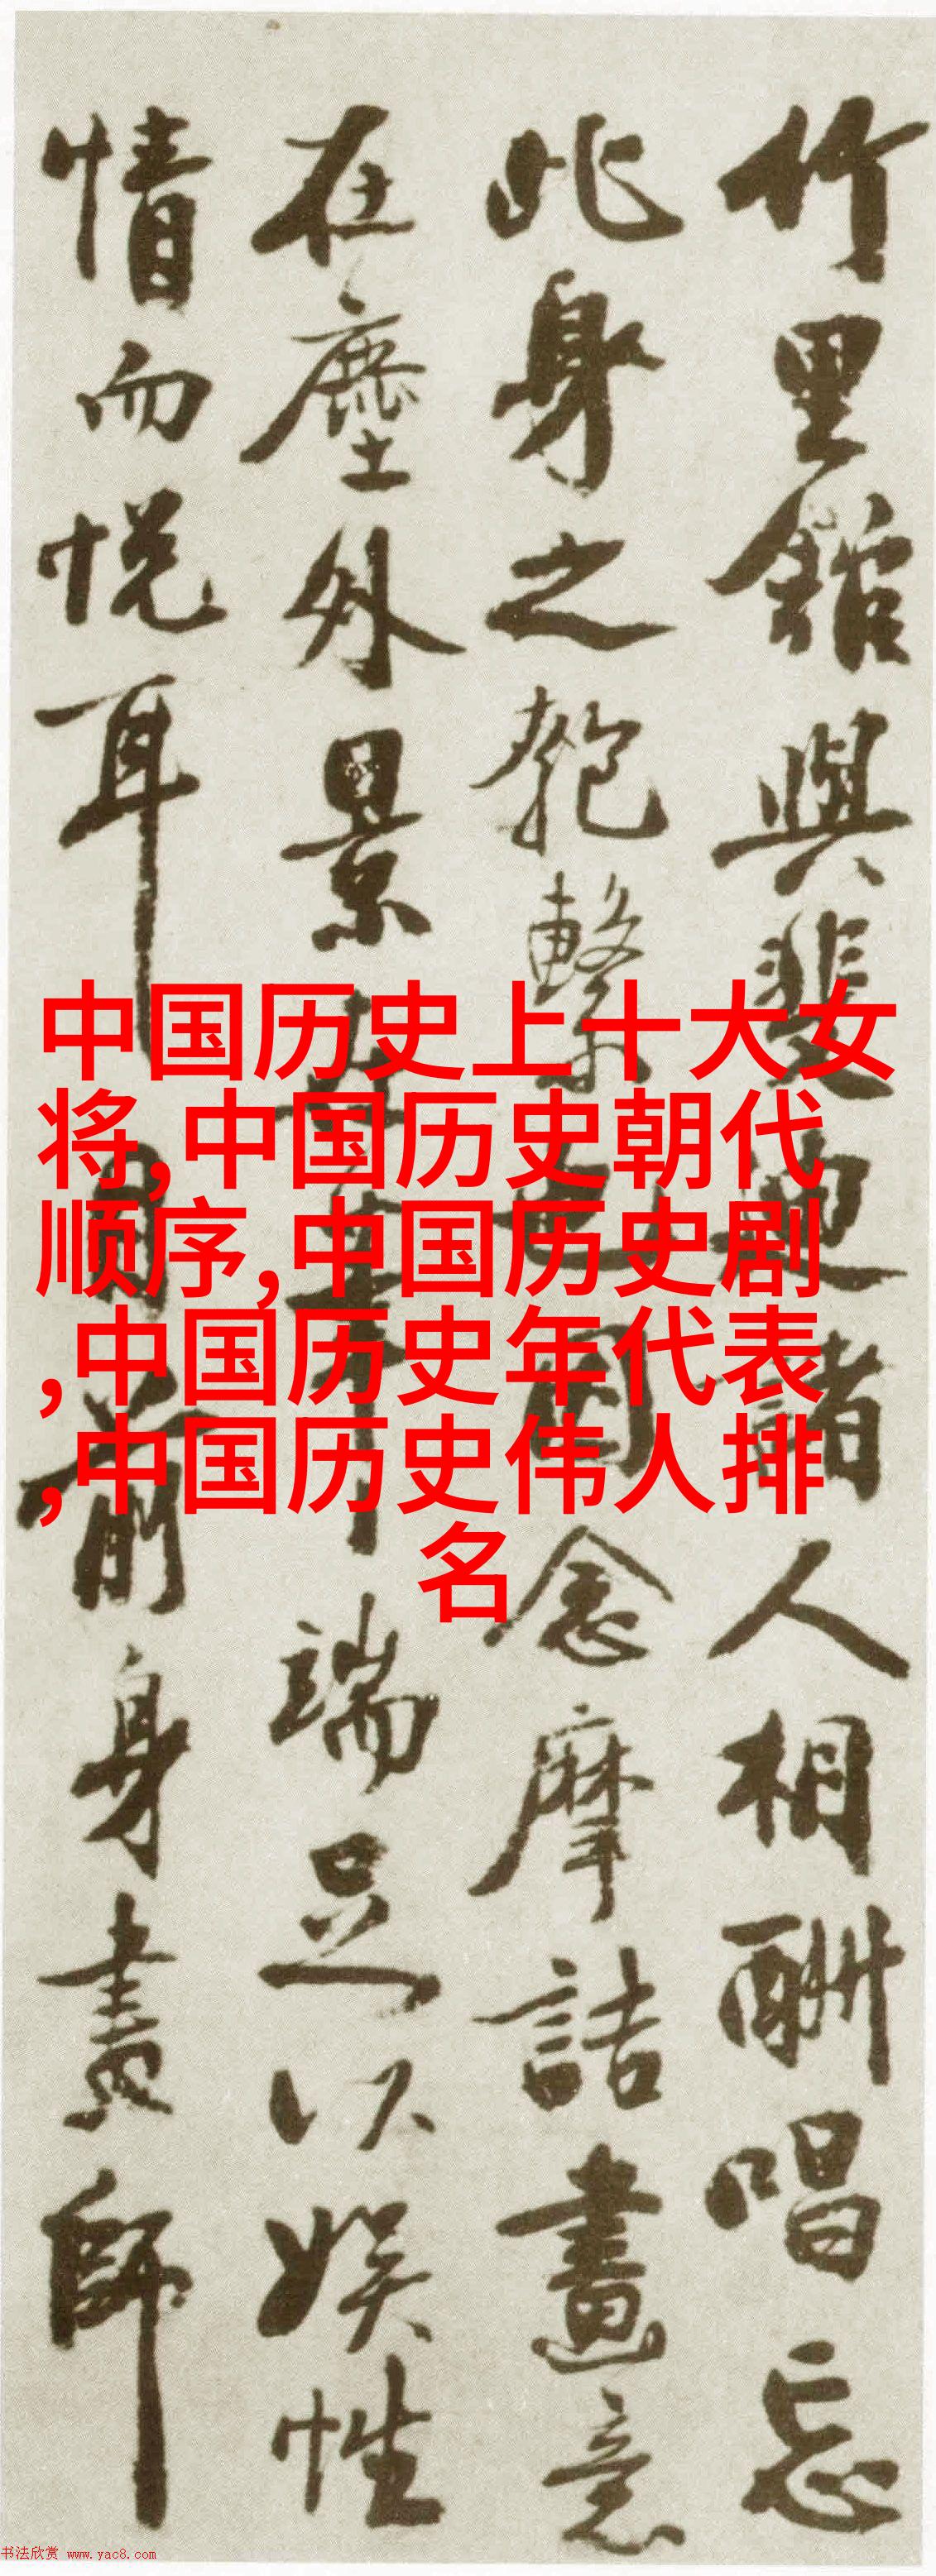 竹里舘與裴迪諸人相酬唱忘
此身之匏繫也因念摩詰畫意
在塵外景在筆端足以娛性
情而悅耳目前身畫師
中国历史上十大女
将,中国历史朝代
顺序,中国历史剧
,中国历史年代表
,中国历史伟人排
名
书法欣赏 www.yac8.com